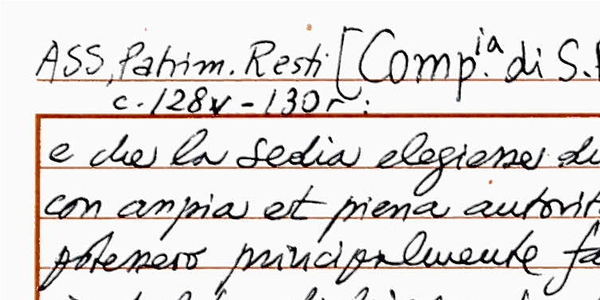 ASS, Patrim. Resti [Comp.ia di S.
c. 128v - 130r:
e che la sedia elegiesse du
con anpia et piena autorit
potessero principalmente fa